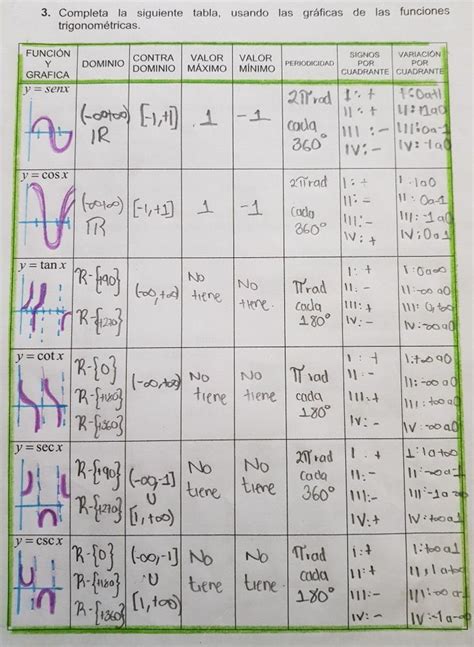 3. Completa la siguiente tabla, usando las gráficas de las funciones
trigonométricas.
FUNCIÓN Y GRAFICA DOMINIO CONTRA DOMINIO VALOR MÁXIMO VALOR MÍNIMO PERIODICIDAD SIGNOS POR CUADRANTE VARIACIÓN POR CUADRANTE
y = senx
(-∞+∞) [-1,+1] 1 -1
IR
2π rad
cada
360°
I: +
II: +
III: -
IV: -
I: 0a+1
II: 1a0
III: 0a-1
IV: -1a0
y = cos x
(-∞+∞) [-1,+1] 1 -1
IR
2π rad
cada
360°
I: +
II: -
III: -
IV: +
I: 1a0
II: 0a-1
III: -1a0
IV: 0a1
y = tan x
R-{+90}
R-{+270}
(-∞,+∞)
No
tiene
No
tiene.
π rad
cada
180°
I: +
II: -
III: +
IV: -
I: 0a∞
II: -∞a0
III: 0,+∞
IV: -∞a0
y = cot x
R-{0}
R-{+180}
R-{+360}
(-∞,+∞)
No
tiene
No
tiene
π rad
cada
180°
I: +
II: -
III: +
IV: -
I: +∞a0
II: -∞a0
III: +∞a0
IV: -∞a0
y = sec x
R-{+90}
R-{+270}
(-∞,-1]
U
[1,+∞)
No
tiene
No
tiene
2π rad
cada
360°
I: +
II: -
III: -
IV: +
I: 1a+∞
II: -∞a-1
III: -1a-∞
IV: +∞a1
y = csc x
R-{0}
R-{180}
R-{+360}
(-∞,-1]
U
[1,+∞)
No
tiene
No
tiene.
π rad
cada
180°
I: +
II: +
III: -
IV: -
I: +∞a1
II: 1a+∞
III: -∞a-1
IV: -1a-∞